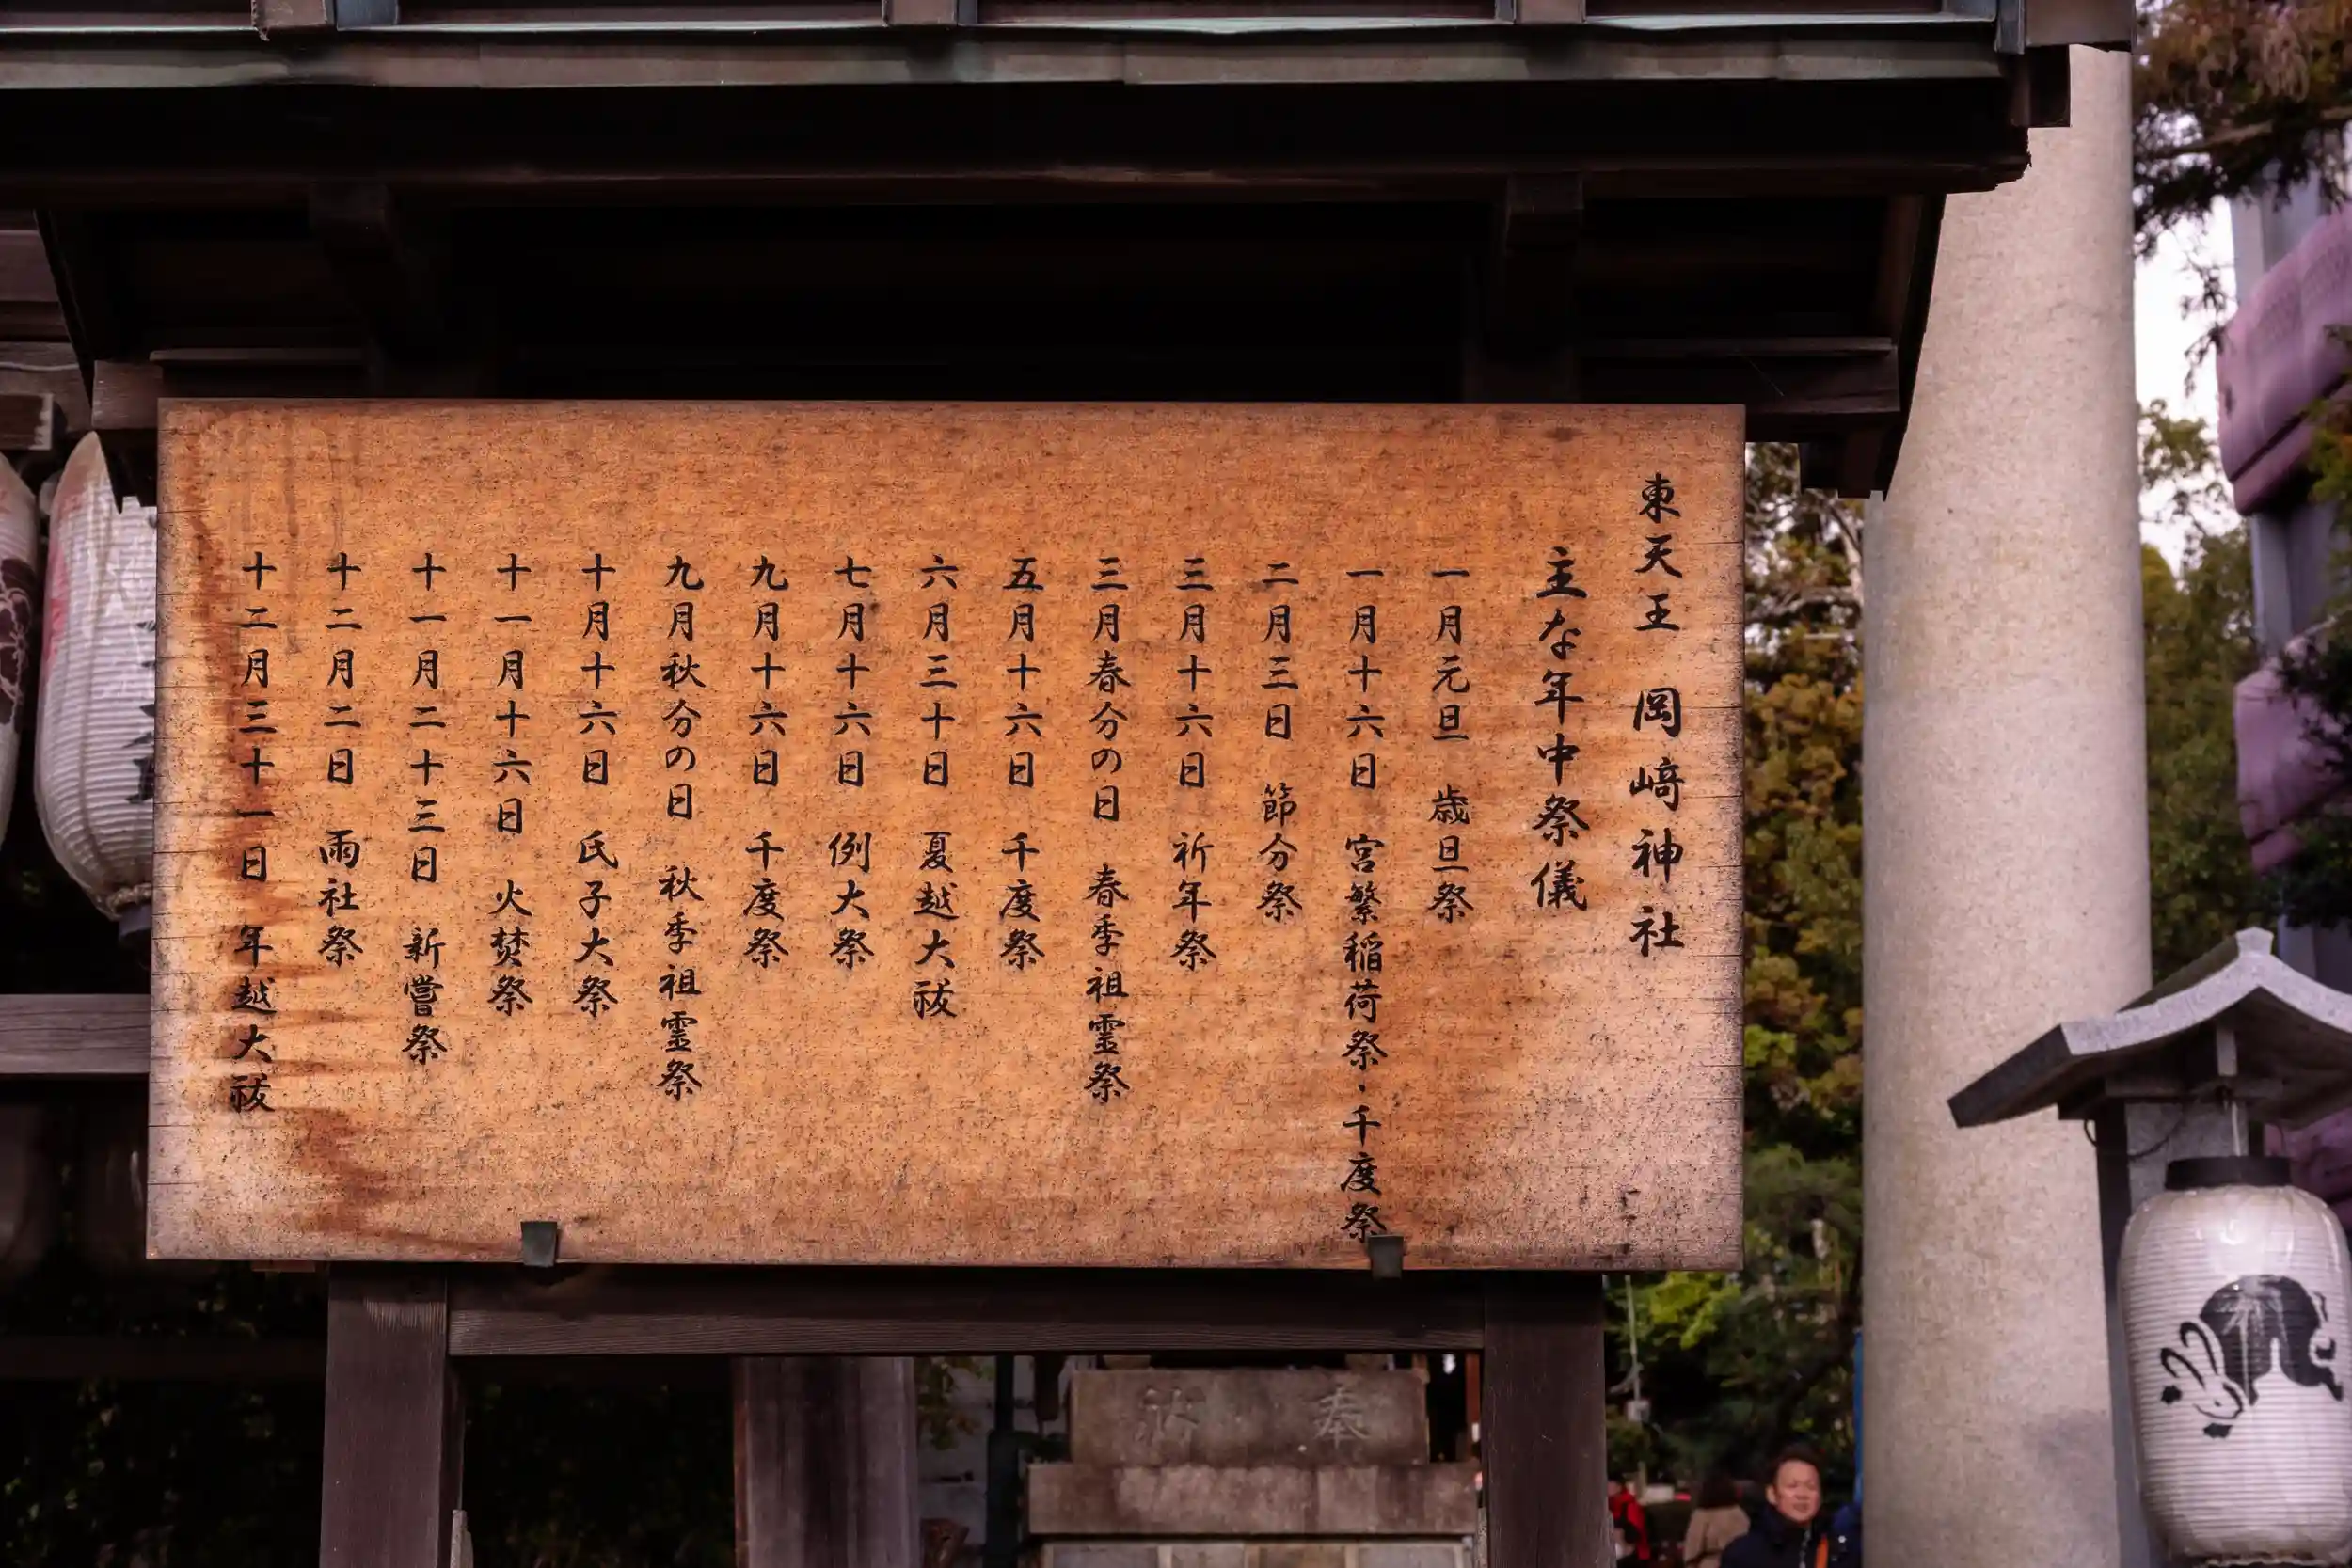 東天王 岡﨑神社
主な年中祭儀
一月元旦 歳旦祭
一月十六日 宮繁稲荷祭・千度祭
二月三日 節分祭
三月十六日 祈年祭
三月春分の日 春季祖霊祭
五月十六日 千度祭
六月三十日 夏越大祓
七月十六日 例大祭
九月十六日 千度祭
九月秋分の日 秋季祖霊祭
十月十六日 氏子大祭
十一月十六日 火焚祭
十一月二十三日 新嘗祭
十二月二日 雨社祭
十二月三十一日 年越大祓
奉